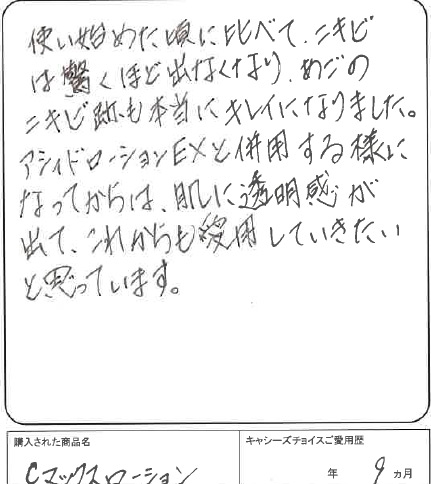 使い始めた頃に比べて、ニキビ
は驚くほど出なくなり、あごの
ニキビ跡も本当にキレイになりました。
アシィドローションEXと併用する様に
なってからは、肌に透明感が
出て、これからも愛用していきたい
と思っています。
購入された商品名
キャシーズチョイスご愛用歴
Cマックスローション
年 9 ヵ月